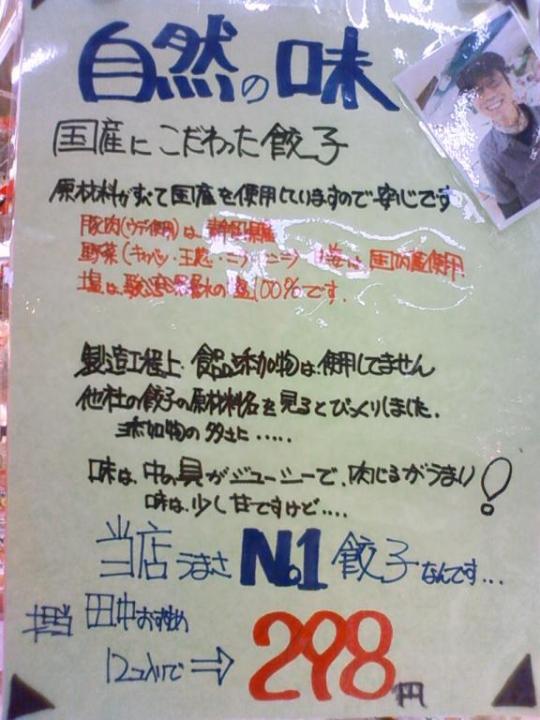 自然の味
国産にこだわった餃子
原材料がすべて国産を使用していますので安心です
豚肉(ウデ使用)は 静岡県産
野菜(キャベツ・玉葱・ニラ ニンニク) は、国内産使用
塩は、駿遠の 塩100%です.
製造工程上 食品添加物は使用してません
他社の餃子の原材料名を見るとびっくりしました.
添加物の多さに.....
味は、中の具がジューシーで、肉じるがうまい!
味は、少し甘ですけど....
当店うまさNo.1餃子なんです...
担当 田中おすすめ
12コ入りで⇒298円